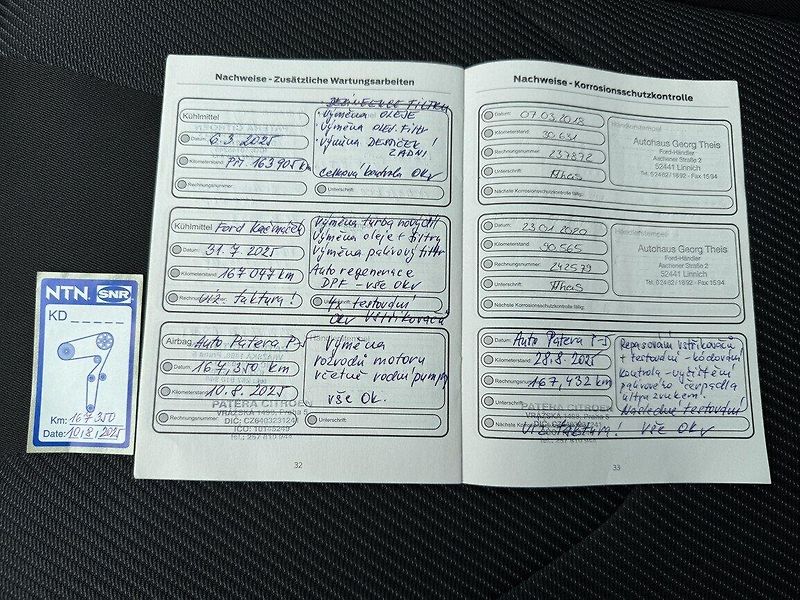 Nachweise - Zusätzliche Wartungsarbeiten
Kühlmittel
Datum: 6.3.2025
Kilometerstand: 163905 km
Rechnungsnummer:
výměna OLEJE
výměna OLEJ. Filtr
ZADNÍ
Celková kontrola OK
Unterschrift:
Kühlmittel Ford
Datum: 31.7.2025
Kilometerstand: 167 047 km
Rechnungsnummer: viz. faktura!
výměna turba
výměna oleje + filtru
výměna palivový filtr
Auto regenerace
DPF - vše OK
4x testování
vstřikovačů
Airbag Auto Patera P-5
Kilometerstand: 167,350 km
Kilometerstand: 10.8.2025
Rechnungsnummer:
výměna
rozvodů motoru
včetně vodní pumpy
vše OK.
Unterschrift:
PATERA CITROEN
VRÁZSKA 1498, Praha 5
DIČ: CZ6403231241
IČO: 10145249
Tel.: 257 810 944
32
Nachweise - Korrosionsschutzkontrolle
Datum: 07.03.2018
Kilometerstand: 30.631
Rechnungsnummer: 237872
Unterschrift: Theis
Nächste Korrosionsschutzkontrolle fällig:
Händlerstempel
Autohaus Georg Theis
Ford-Händler
Aachener Straße 2
52441 Linnich
Tel. 02462/1692 - Fax 1594
Datum: 23.01.2020
Kilometerstand: 90.565
Rechnungsnummer: 242579
Unterschrift: Theis
Nächste Korrosionsschutzkontrolle fällig:
Händlerstempel
Autohaus Georg Theis
Ford-Händler
Aachener Straße 2
52441 Linnich
Tel. 02462/1692 - Fax 1594
Datum: Auto Patera P-5
Kilometerstand: 28.8.2025
Rechnungsnummer: 167,432 km
Unterschrift:
viz. faktura!
Repasování vstřikovačů
+ testování - kódování
kontrola - vyčištění
palivového čerpadla
ultrazvukem.
Následné testování
vše OK
PATERA CITROEN
33
NTN. SNR
KD
Km: 167 350
Date: 10,8,2025